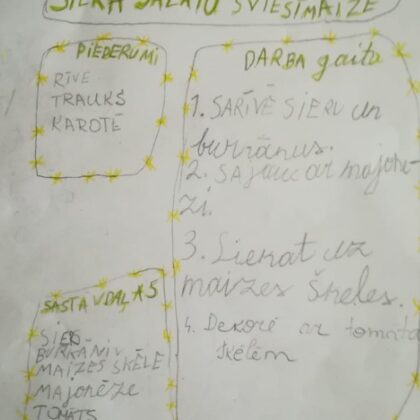 SIERA SALĀTU SVIESTMAIZE
PIEDERUMI
RĪVE
TRAUKS
KAROTE
DARBA gaita
1. SARĪVĒ SIERU un
burkānus.
2. SAjauc ar majonē-
zi.
3. Liekat uz
maizes šķeles.
4. Dekorē ar tomāta
šķēlēm
SASTAVDAĻAS
SIERS
BURKANIV
MAIZES SKĒLE
MAJONĒZE
TOMĀTS